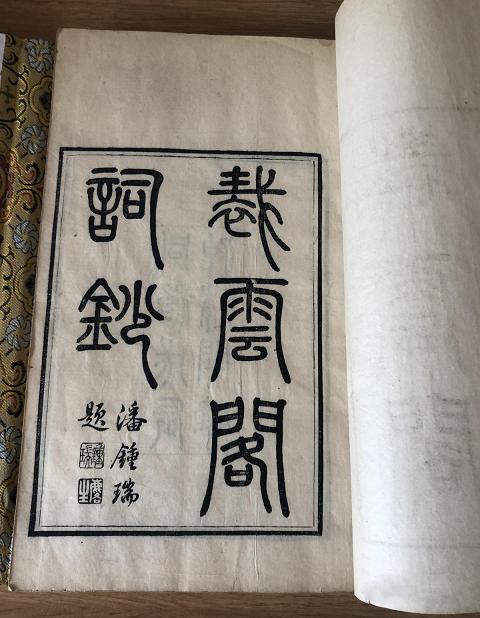 裁雲閣
詞鈔
潘鍾瑞
題